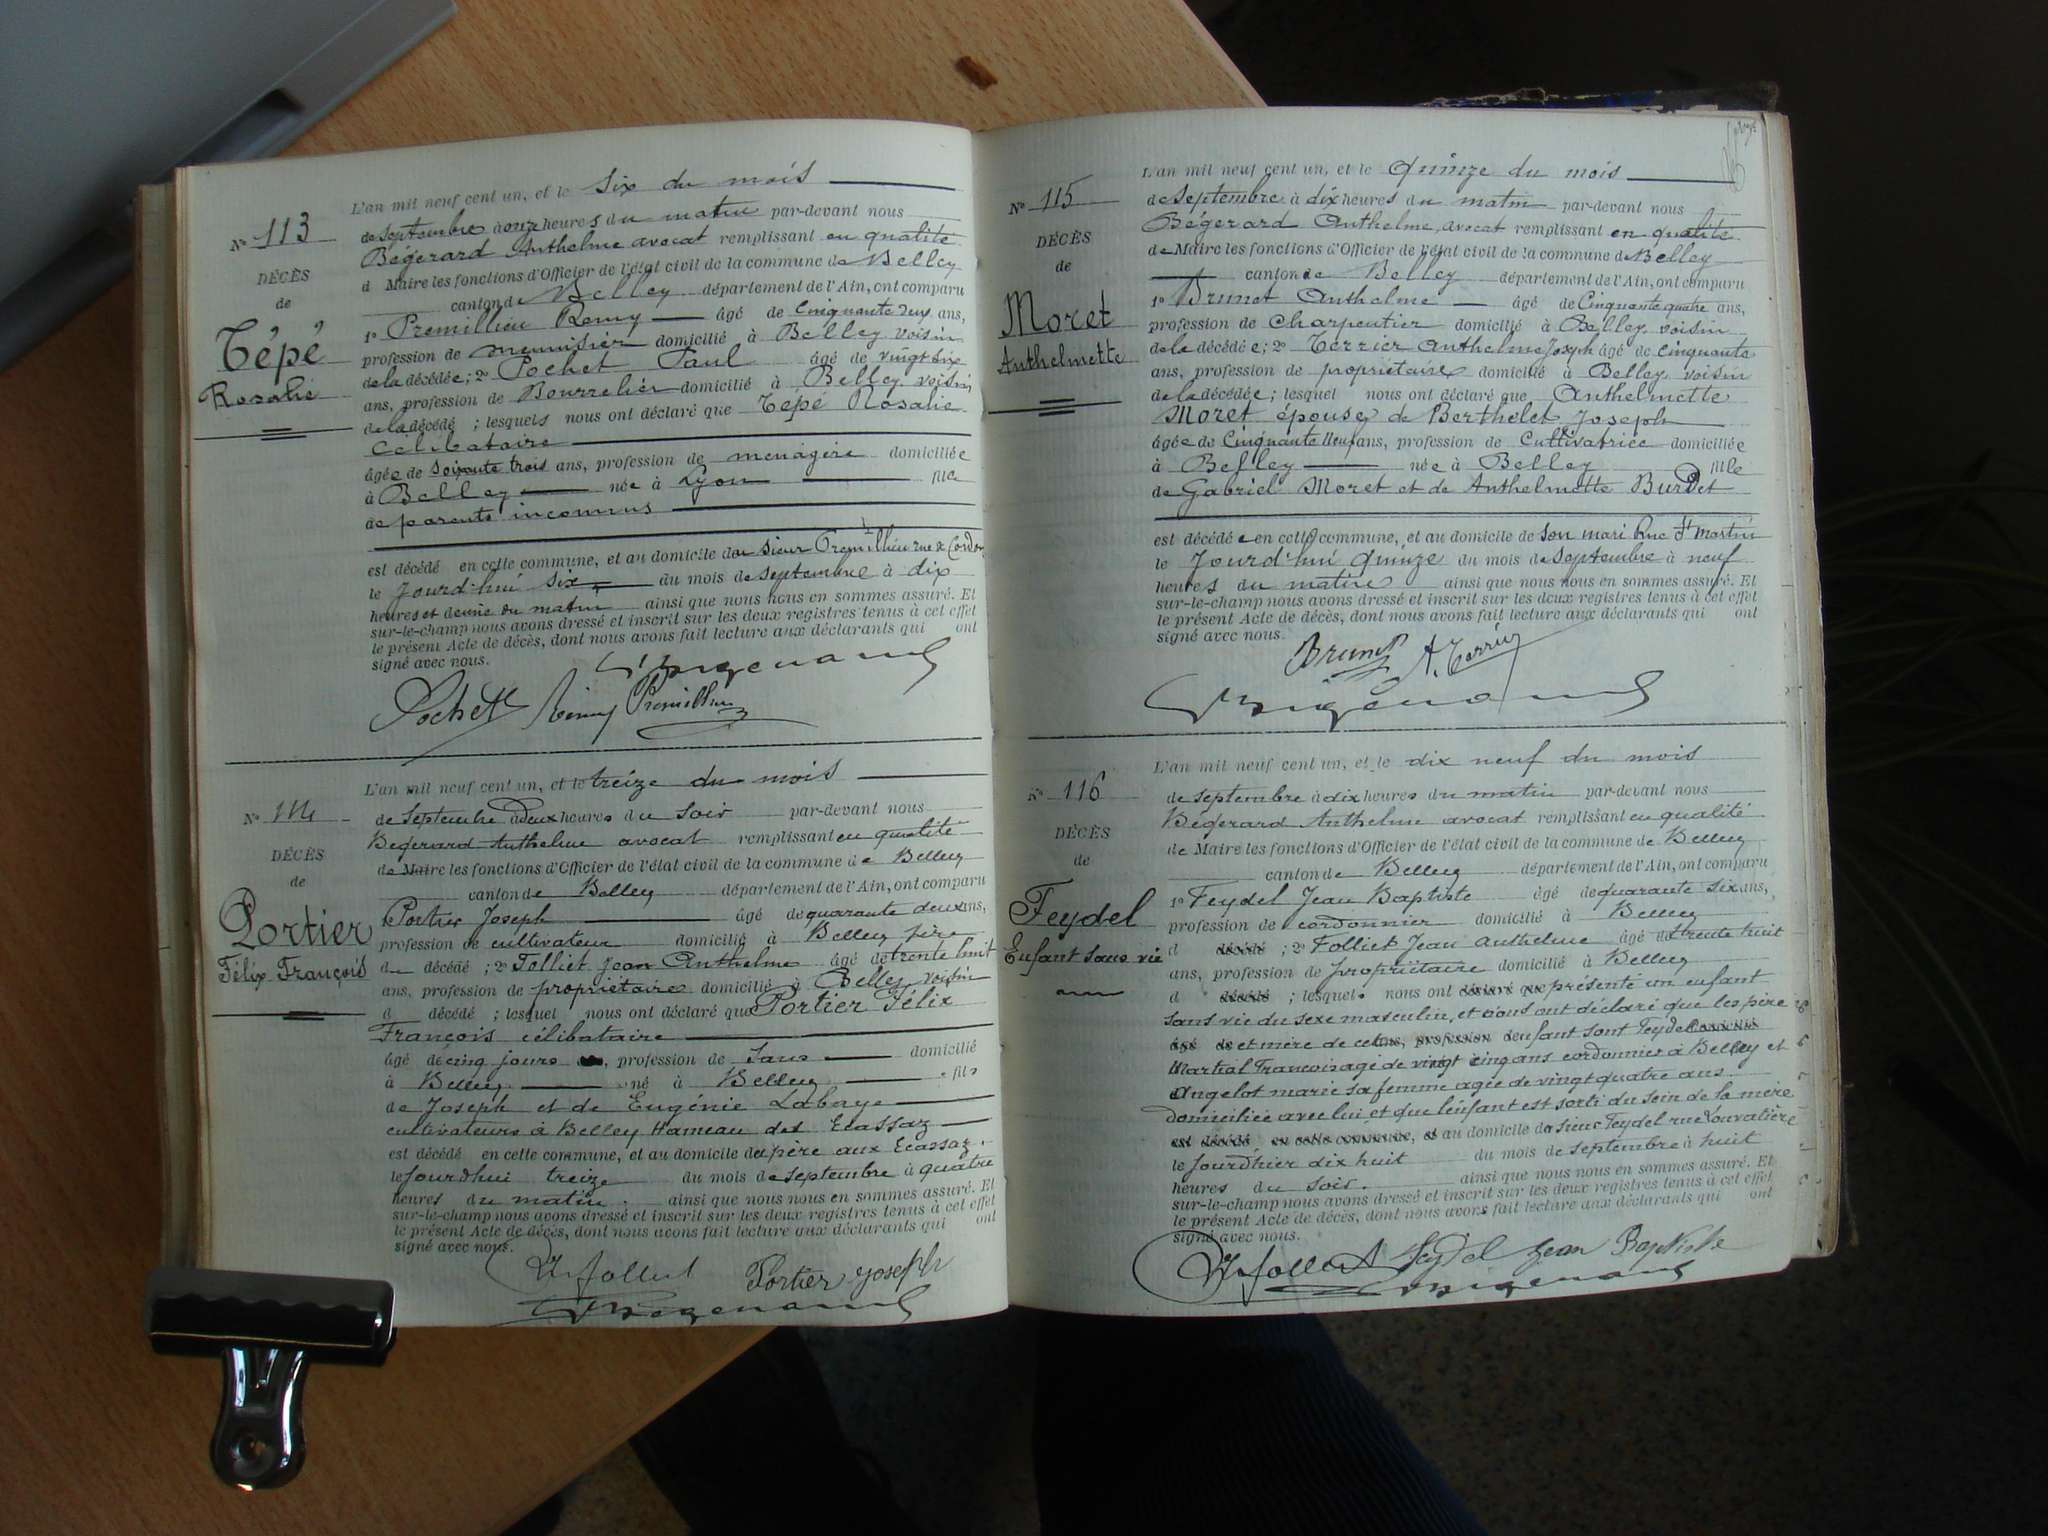 N° 113
DÉCÈS
de
Tépé
Rosalie
L'an mil neuf cent un, et le six du mois
de septembre à onze heures du matin par-devant nous
Bégerard Anthelme avocat remplissant en qualité
d Maire les fonctions d'Officier de l'état civil de la commune de Belley
canton de Belley département de l'Ain, ont comparu
1° Premillieu Remy âgé de Cinquante deux ans,
profession de menuisier domicilié à Belley voisin
de la décédée; 2° Pochet Paul âgé de vingt six
ans, profession de Bourrelier domicilié à Belley voisin
de la décédé ; lesquels nous ont déclaré que Tépé Rosalie
Célibataire
âgée de soixante trois ans, profession de menagère domiciliée
à Belley née à Lyon fille
de parents inconnus
est décédé en cette commune, et au domicile du sieur Premillieu rue de Cordon
le jourd'hui six du mois de septembre à dix
heures et demie du matin ainsi que nous nous en sommes assuré. Et
sur-le-champ nous avons dressé et inscrit sur les deux registres tenus à cet effet
le présent Acte de décès, dont nous avons fait lecture aux déclarants qui ont
signé avec nous.
Pochet Remy Premillieu
N° 114
DÉCÈS
de
Portier
Félix François
L'an mil neuf cent un, et le treize du mois
de Septembre à deux heures du Soir par-devant nous
Begerard Anthelme avocat remplissant en qualité
de Maire les fonctions d'Officier de l'état civil de la commune de Belley
canton de Belley département de l'Ain, ont comparu
1° Portier Joseph âgé de quarante deux ans,
profession de cultivateur domicilié à Belley père
du décédé ; 2° Folliet Jean Anthelme âgé de trente huit
ans, profession de propriétaire domicilié à Belley voisin
d décédé ; lesquel nous ont déclaré que Portier Félix
François célibataire
âgé de cinq jours , profession de Sans domicilié
à Belley né à Belley fils
de Joseph et de Eugénie Labaye
cultivateurs à Belley Hameau des Ecassaz
est décédé en cette commune, et au domicile de père aux Ecassaz.
le jourdhui treize du mois de septembre à quatre
heures du matin. ainsi que nous nous en sommes assuré. Et
sur-le-champ nous avons dressé et inscrit sur les deux registres tenus à cet effet
le présent Acte de décès, dont nous avons fait lecture aux déclarants qui ont
signé avec nous.
Portier Joseph
N° 115
DÉCÈS
de
Moret
Anthelmette
L'an mil neuf cent un, et le Quinze du mois
de Septembre à dix heures du matin par-devant nous
Bégerard Anthelme, avocat remplissant en qualité
de Maire les fonctions d'Officier de l'état civil de la commune de Belley
canton de Belley département de l'Ain, ont comparu
1° Brunet Anthelme âgé de Cinquante quatre ans,
profession de Charpentier domicilié à Belley voisin
de la décédée; 2° Terrier Anthelme Joseph âgé de Cinquante
ans, profession de propriétaire domicilié à Belley voisin
de la décédée; lesquels nous ont déclaré que Anthelmette
Moret épouse de Berthelet Joseph
âgée de Cinquante Neuf ans, profession de Cultivatrice domiciliée
à Belley née à Belley fille
de Gabriel Moret et de Anthelmette Burdet
est décédée en cette commune, et au domicile de son mari Rue St Martin
le Jourd'hui quinze du mois de septembre à neuf
heures du matin ainsi que nous nous en sommes assuré. Et
sur-le-champ nous avons dressé et inscrit sur les deux registres tenus à cet effet
le présent Acte de décès, dont nous avons fait lecture aux déclarants qui ont
signé avec nous.
Brunet A. Terrier
N° 116
DÉCÈS
de
Feydel
Enfant sans vie
L'an mil neuf cent un, et le dix neuf du mois
de septembre à dix heures du matin par-devant nous
Bégerard Anthelme avocat remplissant en qualité
de Maire les fonctions d'Officier de l'état civil de la commune de Belley
canton de Belley département de l'Ain, ont comparu
1° Feydel Jean Baptiste âgé de quarante six ans,
profession de cordonnier domicilié à Belley
d décédé ; 2° Folliet Jean Anthelme âgé de trente huit
ans, profession de propriétaire domicilié à Belley
d décédé ; lesquels nous ont déclaré que présenté un enfant
sans vie du sexe masculin, et nous ont déclaré que les père
âgé de et mère de cet ans, profession d enfant sont Feydel
Martial François agé de vingt cinq ans cordonnier à Belley et
Angelot marie sa femme agée de vingt quatre ans
domiciliée avec lui et que l'enfant est sorti du sein de sa mère
est décédé en cette commune, et au domicile du sieur Feydel rue Louvatière
le jourd'hier dix huit du mois de septembre à huit
heures du soir. ainsi que nous nous en sommes assuré. Et
sur-le-champ nous avons dressé et inscrit sur les deux registres tenus à cet effet
le présent Acte de décès, dont nous avons fait lecture aux déclarants qui ont
signé avec nous.
Feydel Jean Baptiste